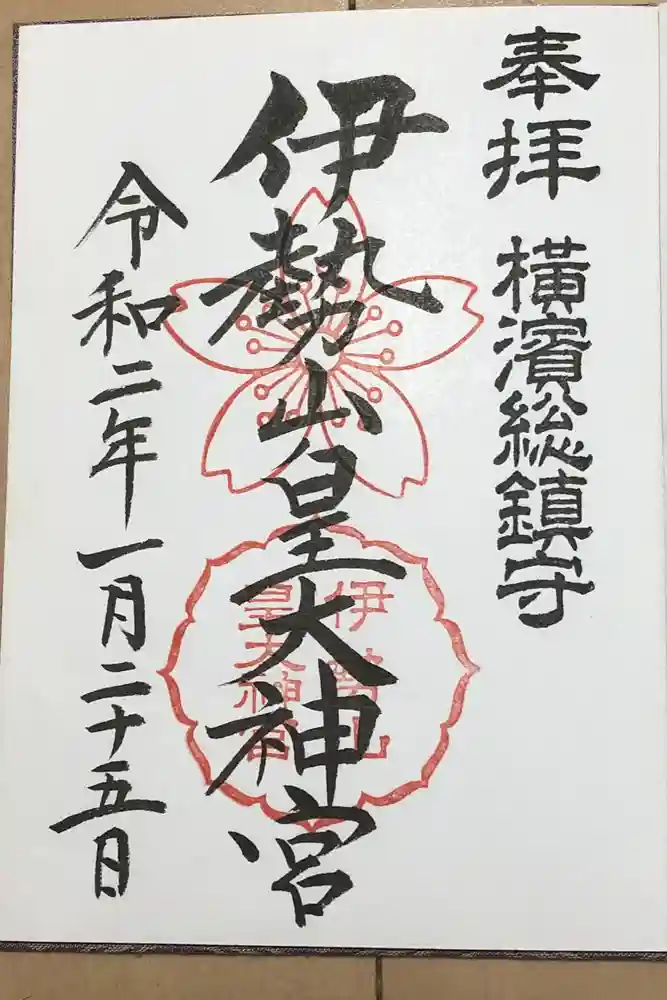 奉拝 横濱総鎮守
伊勢山皇大神宮
伊勢山
皇大神宮
令和二年一月二十五日